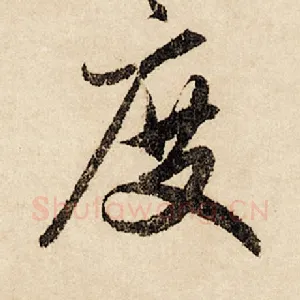 度
Shufawang.CN